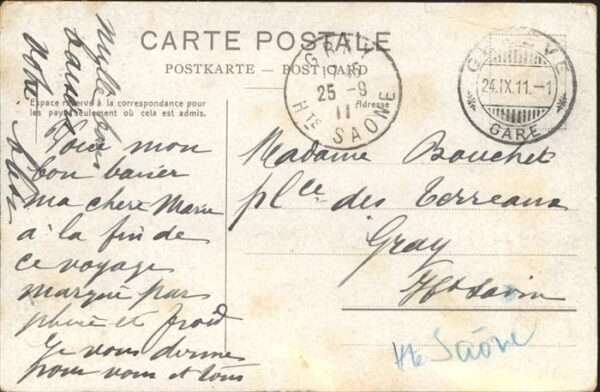 CARTE POSTALE
POSTKARTE — POST CARD
Espace réservé à la correspondance pour
les pays seulement où cela est admis.
Adresse
GRAY
25 -9
11
Hte SAONE
GENEVE
24.IX.11.-1
GARE
Madame Bouchet
plce des Terreaux
Gray
Hte Saône
Hte Saône
Pour mon
bon baiser
ma chère Marie
à la fin de
ce voyage
marqué par
pluie et froid
Je vous donne
pour vous et tous